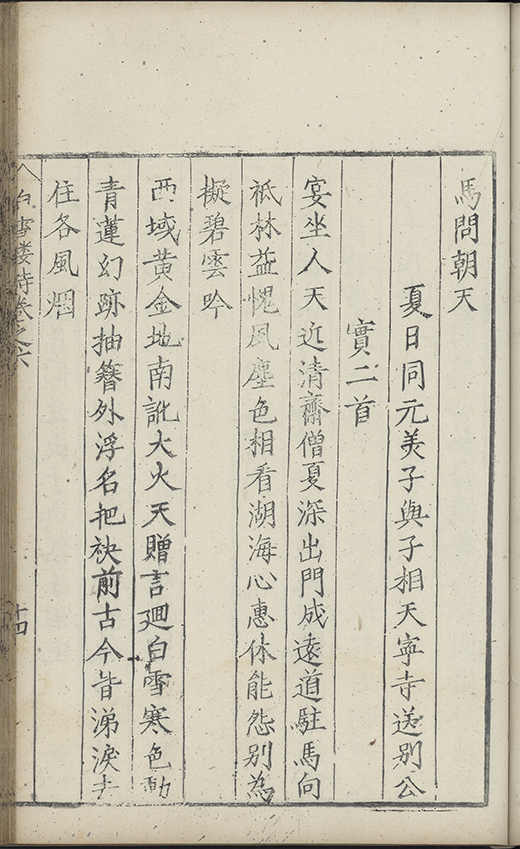 馬問朝天
夏日同元美子與子相天寧寺送別公
實二首
宴坐人天近清齋僧夏深出門成遠道駐馬向
祗林益愧風塵色相看湖海心惠休能怨別為
擬碧雲吟
西域黃金地南訛大火天贈言廻白雪寒色動
青蓮幻跡抽簪外浮名把袂前古今皆涕淚去
住各風烟
白雪樓詩卷之六
十四